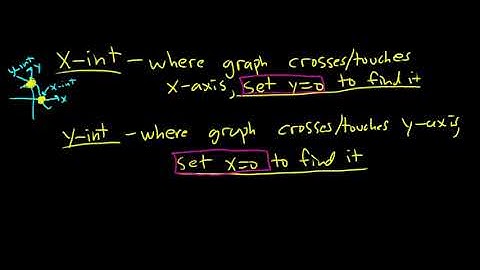 x-int - where graph crosses/touches
x-axis, set y=0 to find it
y-int - where graph crosses/touches y-axis,
set x=0 to find it
y-int
y
x-int
x